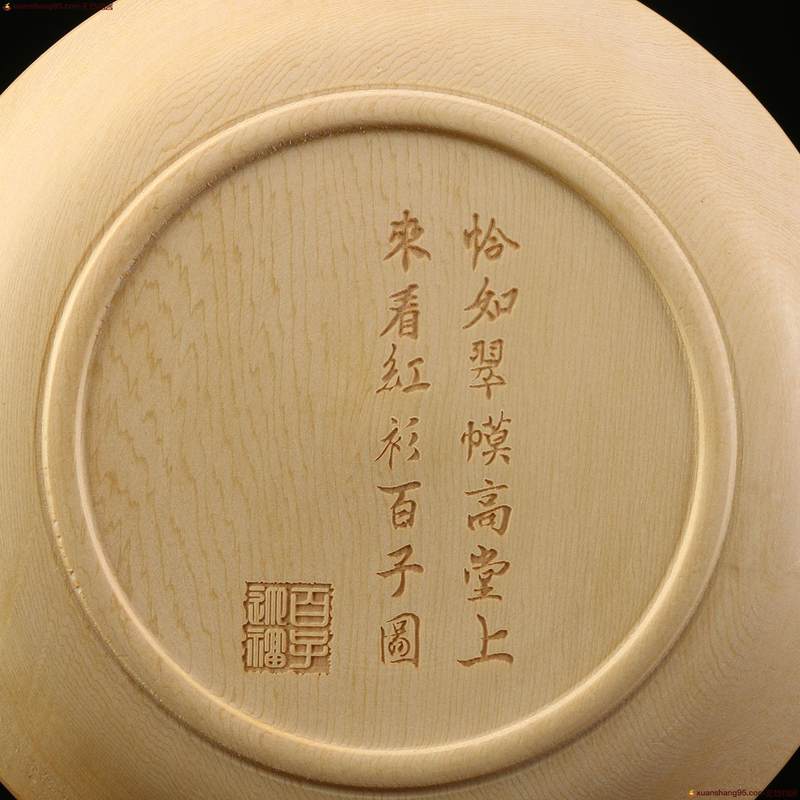 恰如翠幙高堂上
來看紅衫百子圖
百子迎福
xuanshang95.com
xuanshang95.com